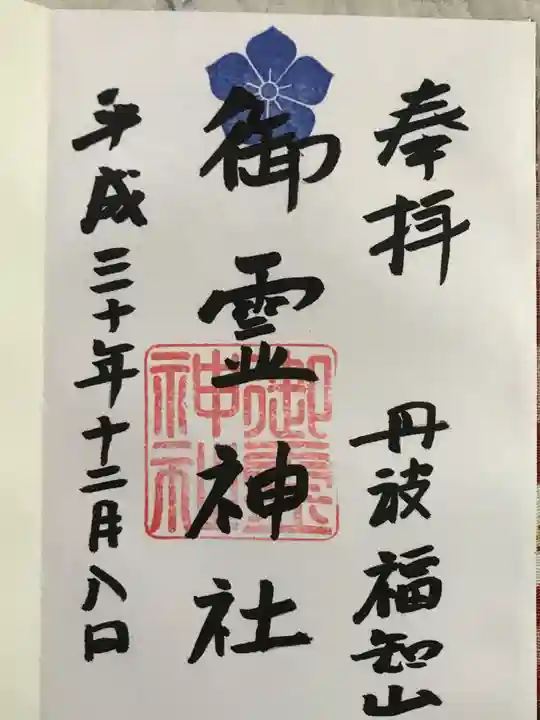 奉拝
丹波福知山
御霊神社
御霊神社
平成三十年十二月八日